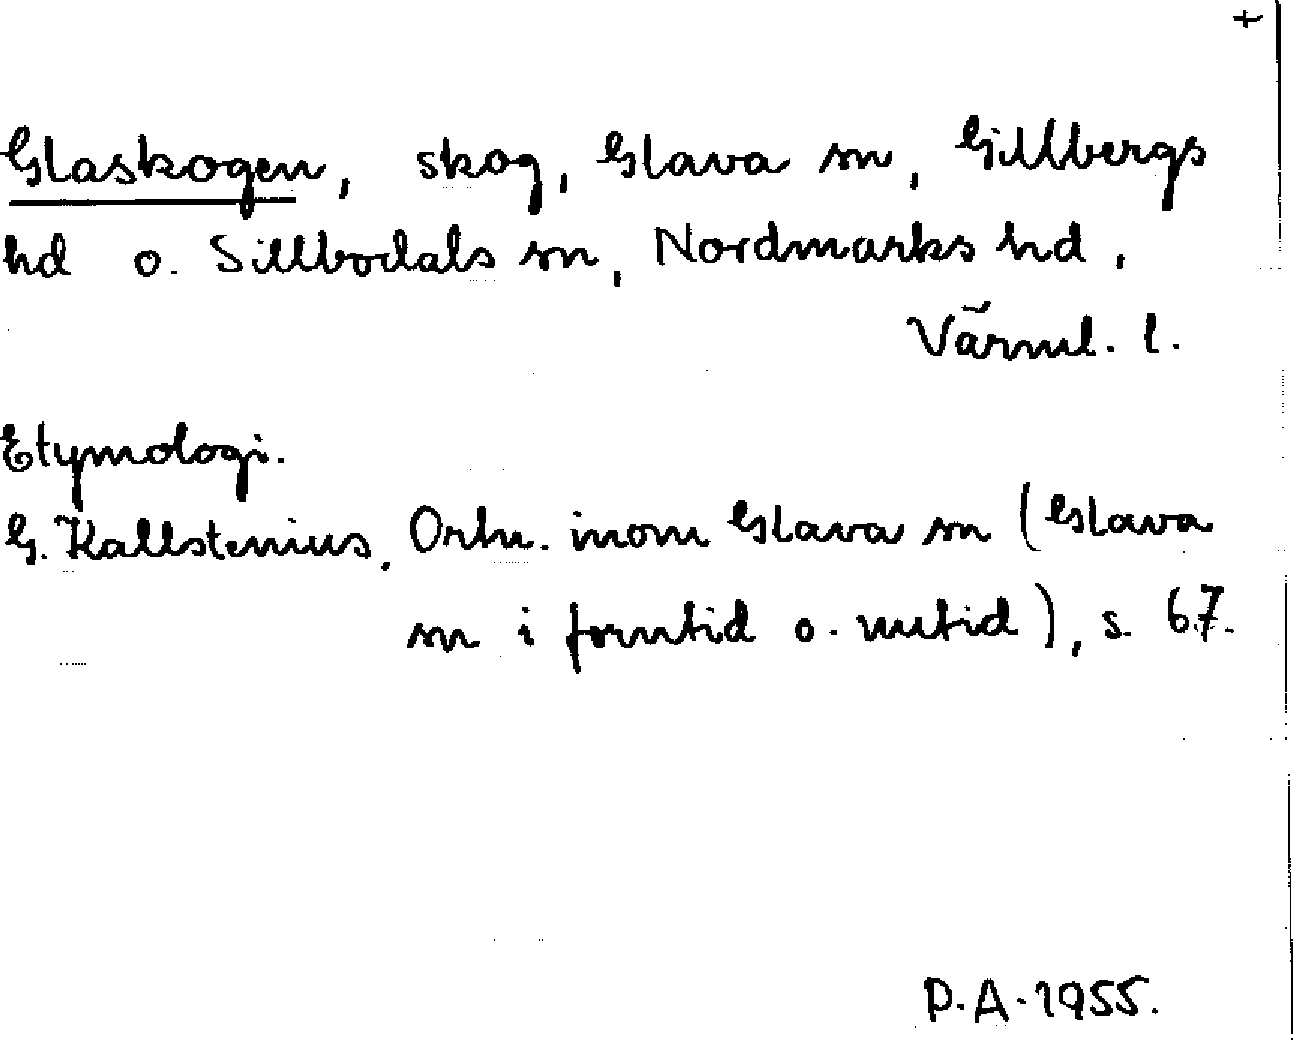 +
Glaskogen, skog, Glava sn, Gillbergs
hd o. Sillbodals sn, Nordmarks hd,
Värml. l.
Etymologi.
G. Kallstenius, Ortn. inom Glava sn (Glava
sn i forntid o. nutid), s. 67.
P.A. 1955.